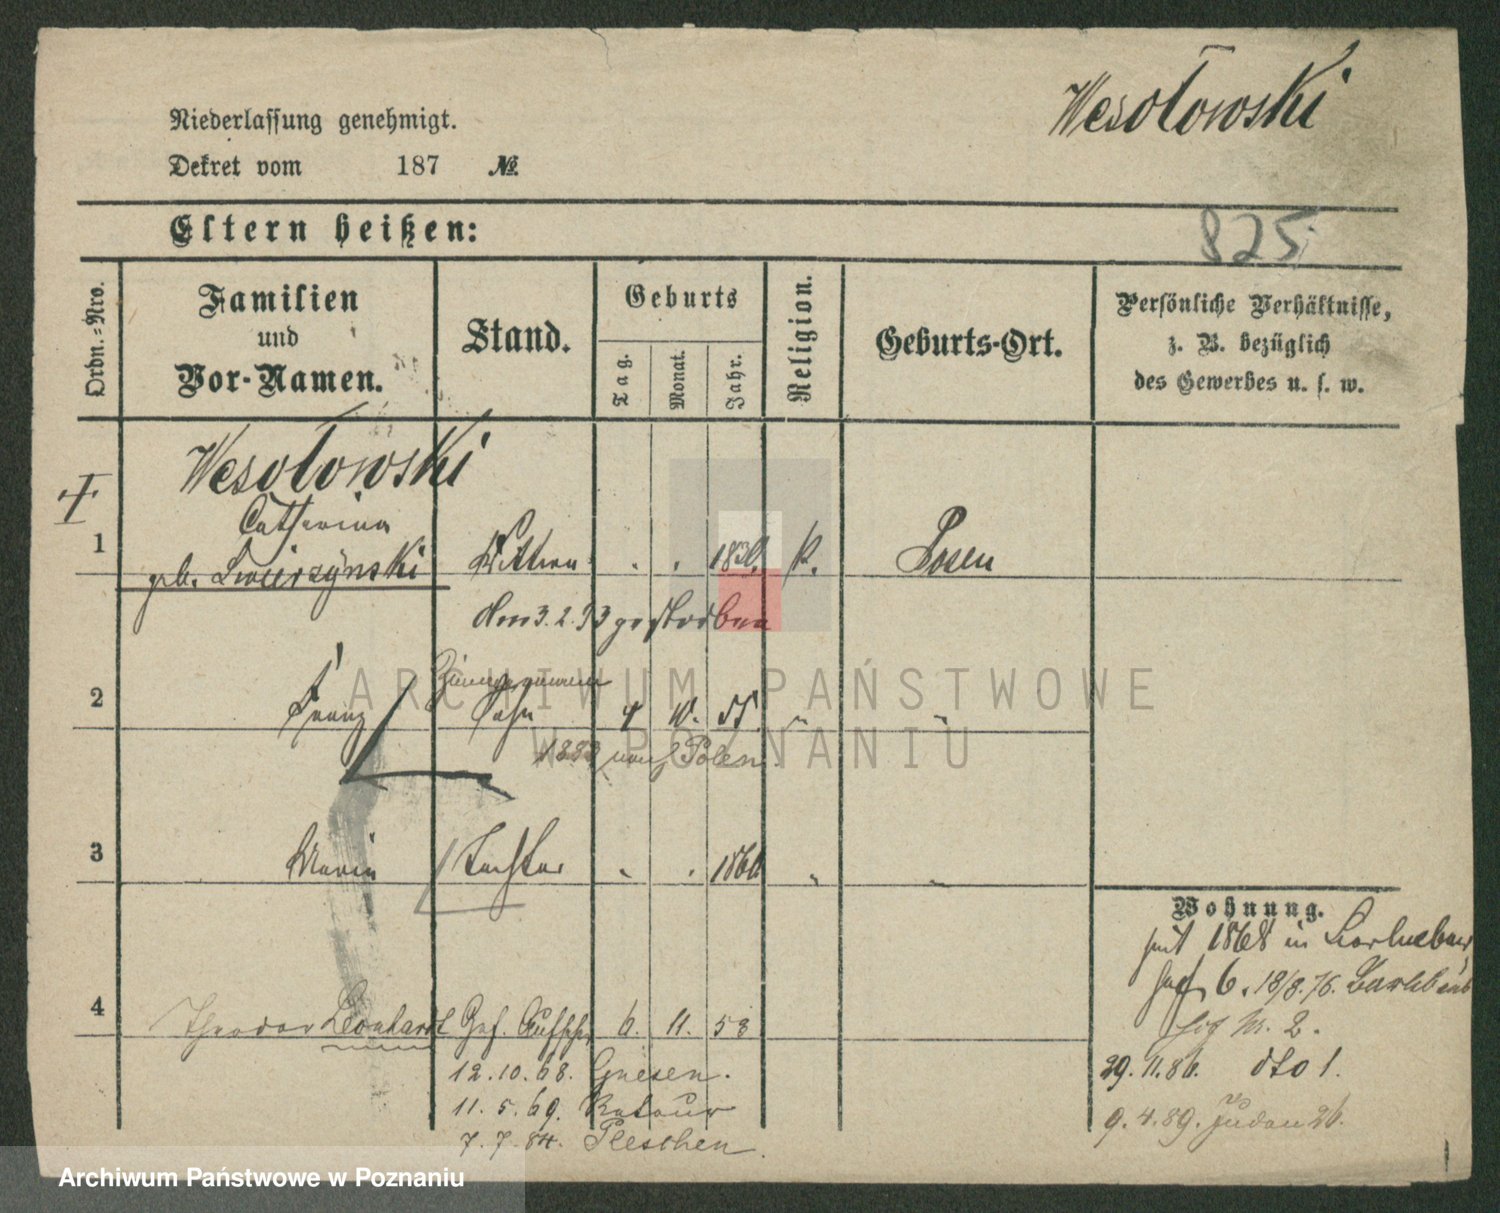 Wesołowski
Niederlassung genehmigt.
Dekret vom 187 №
825
Eltern heißen:
Ordn.-Nro.
Familien und Vor-Namen.
Stand.
Geburts
Tag.
Monat.
Jahr.
Religion.
Geburts-Ort.
Persönliche Verhältnisse,
z. B. bezüglich
des Gewerbes u. s. w.
Wesołowski
Catharina
1 geb. Swierzynski Wittwe . . K. Posen
den 3.2.93 gestorben
2 Franz Sohn 4 10. 55. " "
1883 nach Polen.
3 Maria Tochter " " " "
Wohnung.
seit 1868 in
6. 18/8.76.
4 Theodor Leonhardt 6. 11. 58
N. 2.
12.10.68. Gnesen.
29.11.86. dto 1.
11.5.69. Retour
9.4.89. Juden 26.
7.7.84. Pleschen.
ARCHIWUM PAŃSTWOWE
W POZNANIU
Archiwum Państwowe w Poznaniu